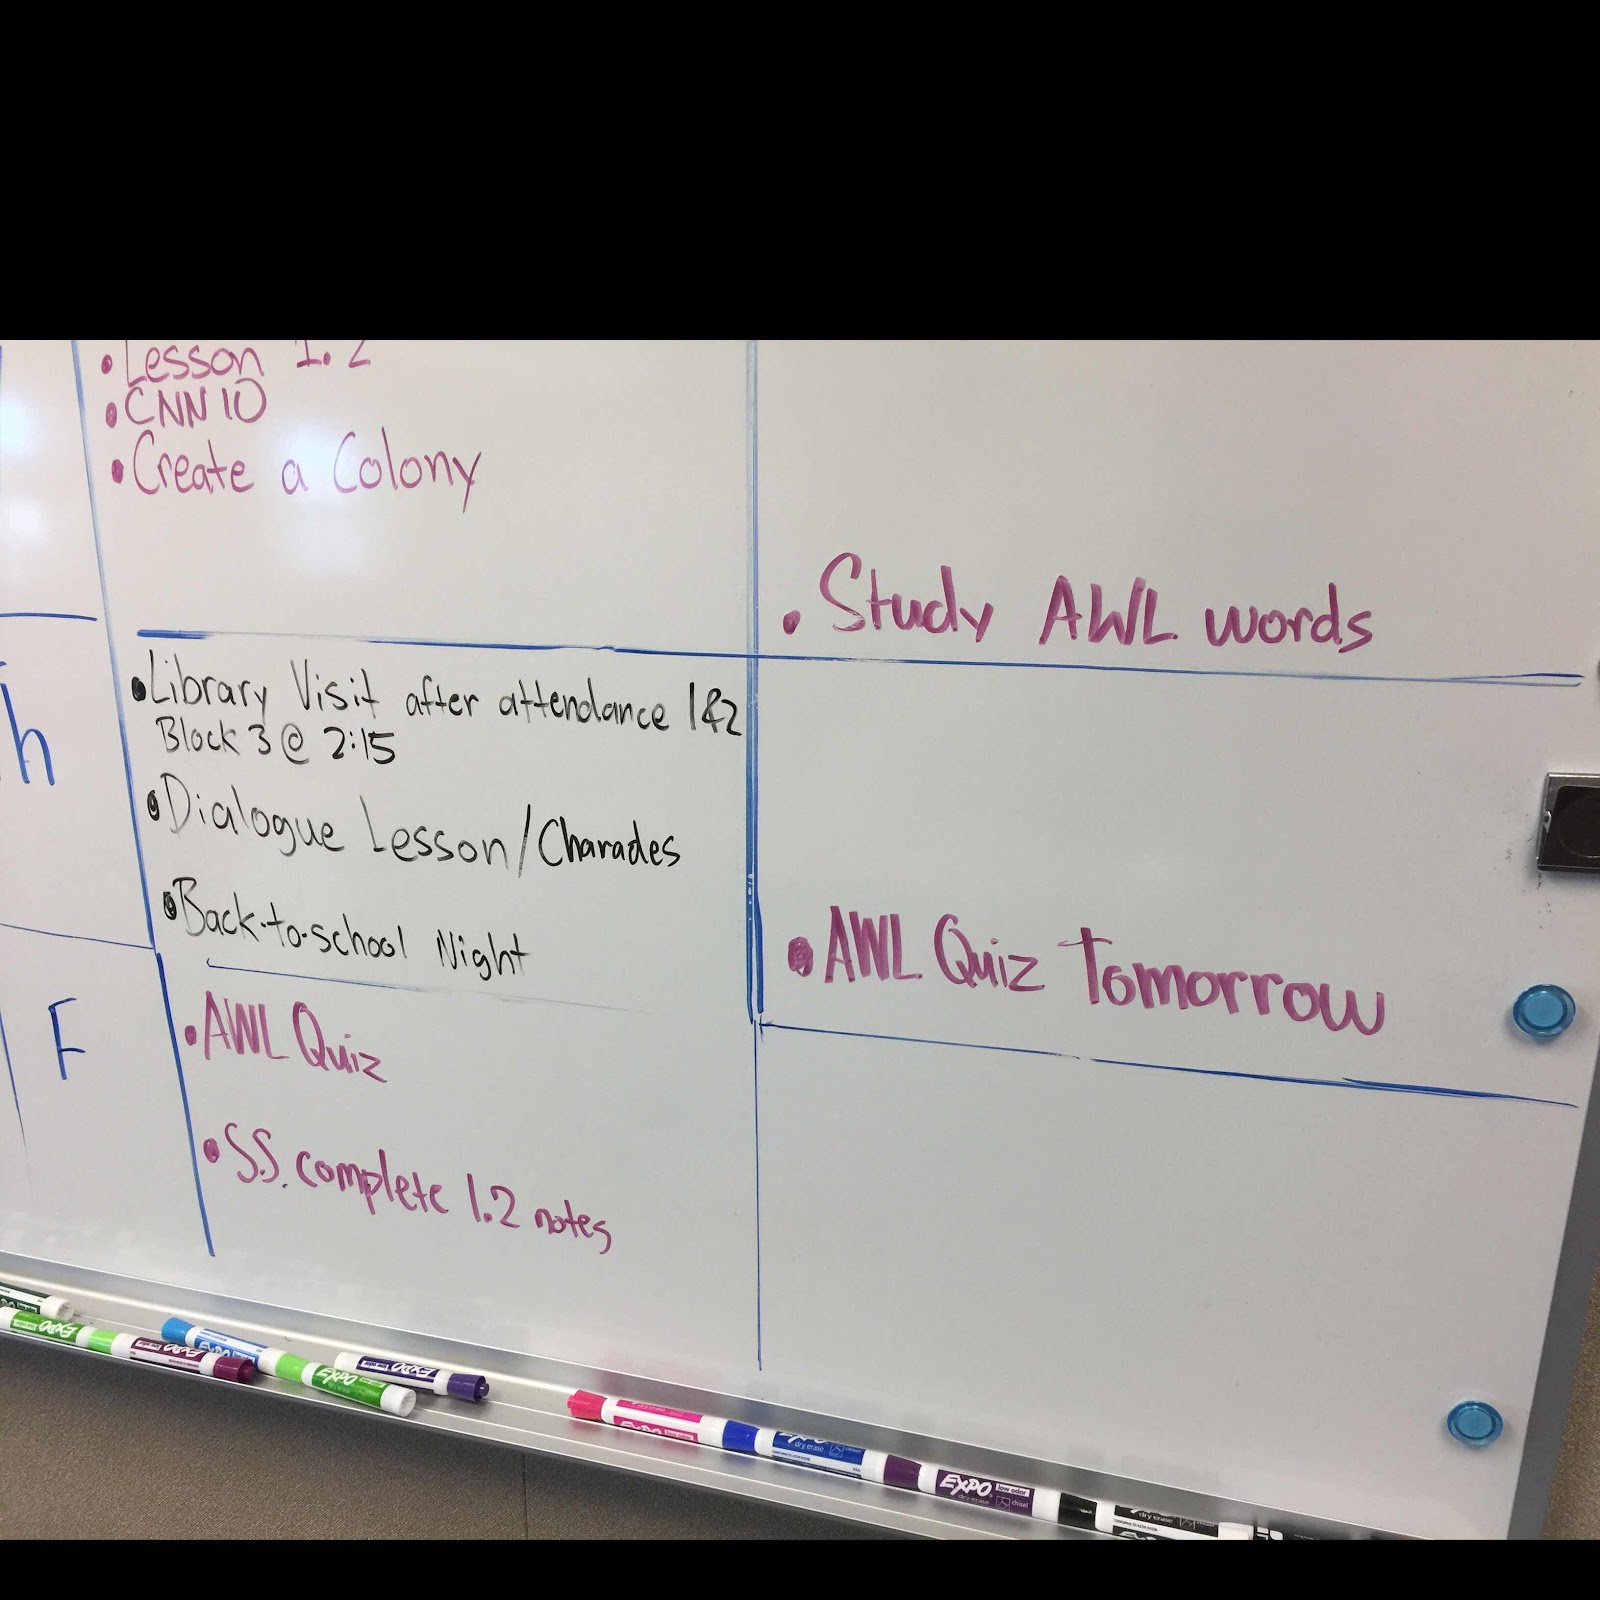 • Lesson 1.2
• CNN 10
• Create a Colony
• Study AWL words
h
• Library Visit after attendance 1&2
Block 3 @ 2:15
• Dialogue Lesson/Charades
• Back-to-school Night
• AWL Quiz Tomorrow
F
• AWL Quiz
• S.S. complete 1.2 notes
EXPO
EXPO
EXPO
EXPO
EXPO
EXPO
dry erase
EXPO
dry erase
chisel
EXPO
low odor
dry erase
chisel
dry erase